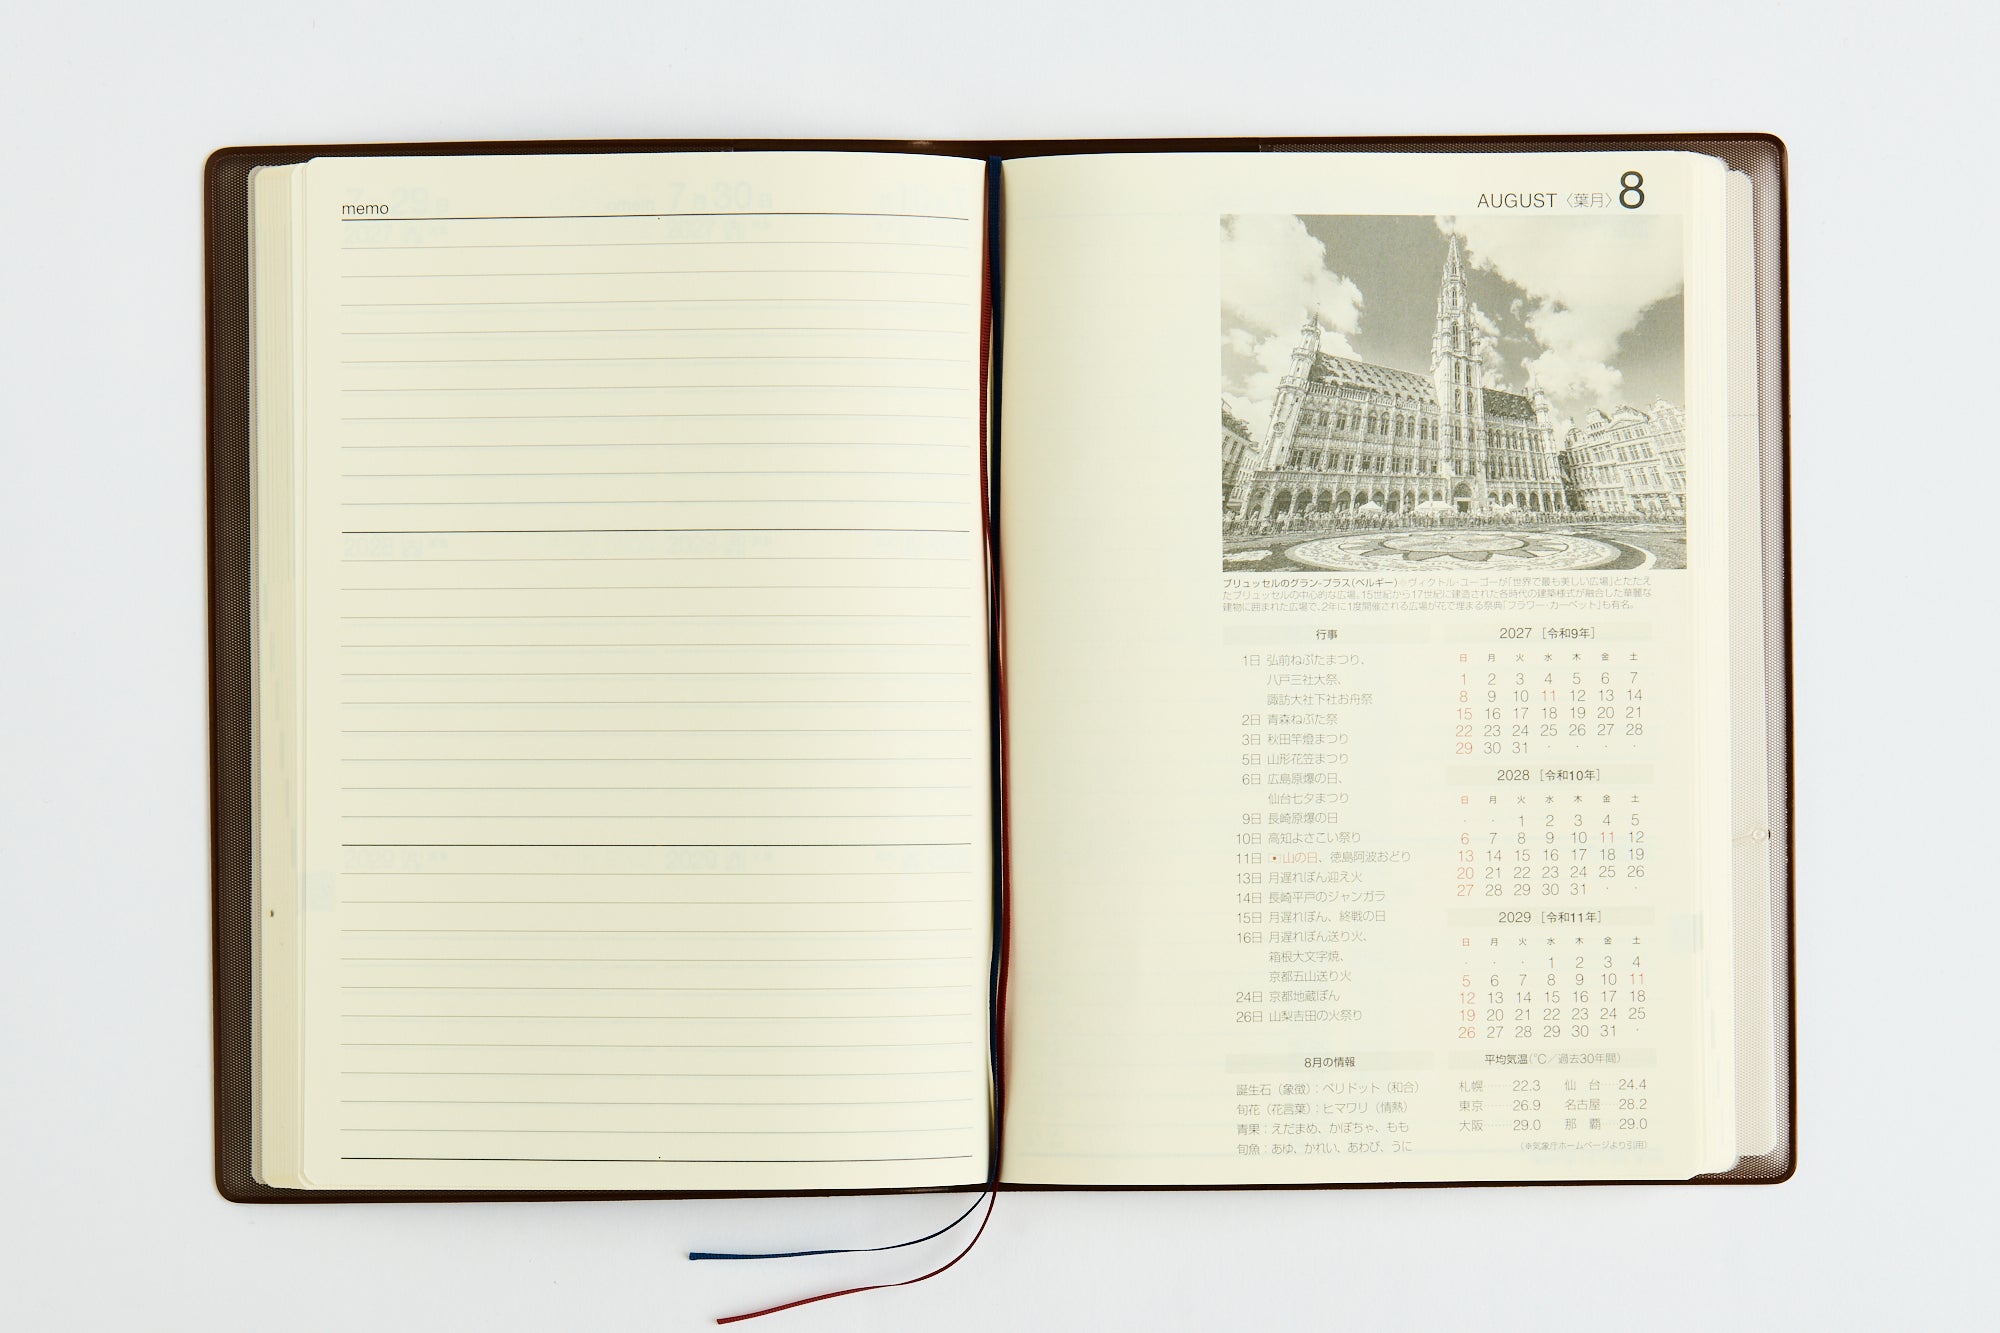 memo
AUGUST 〈葉月〉 8
ブリュッセルのグラン-プラス(ベルギー)※ヴィクトル・ユーゴーが「世界で最も美しい広場」とたたえ
たブリュッセルの中心的な広場。15世紀から17世紀に建造された各時代の建築様式が融合した華麗な
建物に囲まれた広場で、2年に1度開催される広場が花で埋まる祭典「フラワー・カーペット」も有名。
行事
1日 弘前ねぷたまつり、
八戸三社大祭、
諏訪大社下社お舟祭
2日 青森ねぶた祭
3日 秋田竿燈まつり
5日 山形花笠まつり
6日 広島原爆の日、
仙台七夕まつり
9日 長崎原爆の日
10日 高知よさこい祭り
11日 山の日、徳島阿波おどり
13日 月遅れぼん迎え火
14日 長崎平戸のジャンガラ
15日 月遅れぼん、終戦の日
16日 月遅れぼん送り火、
箱根大文字焼、
京都五山送り火
24日 京都地蔵ぼん
26日 山梨吉田の火祭り
2027 [令和9年]
日 月 火 水 木 金 土
1 2 3 4 5 6 7
8 9 10 11 12 13 14
15 16 17 18 19 20 21
22 23 24 25 26 27 28
29 30 31 · · · ·
2028 [令和10年]
日 月 火 水 木 金 土
· · 1 2 3 4 5
6 7 8 9 10 11 12
13 14 15 16 17 18 19
20 21 22 23 24 25 26
27 28 29 30 31 · ·
2029 [令和11年]
日 月 火 水 木 金 土
· · · 1 2 3 4
5 6 7 8 9 10 11
12 13 14 15 16 17 18
19 20 21 22 23 24 25
26 27 28 29 30 31 ·
8月の情報
誕生石(象徴):ペリドット(和合)
旬花(花言葉):ヒマワリ(情熱)
青果:えだまめ、かぼちゃ、もも
旬魚:あゆ、かれい、あわび、うに
平均気温(℃/過去30年間)
札幌……22.3 仙 台…24.4
東京……26.9 名古屋…28.2
大阪……29.0 那 覇…29.0
(※気象庁ホームページより引用)